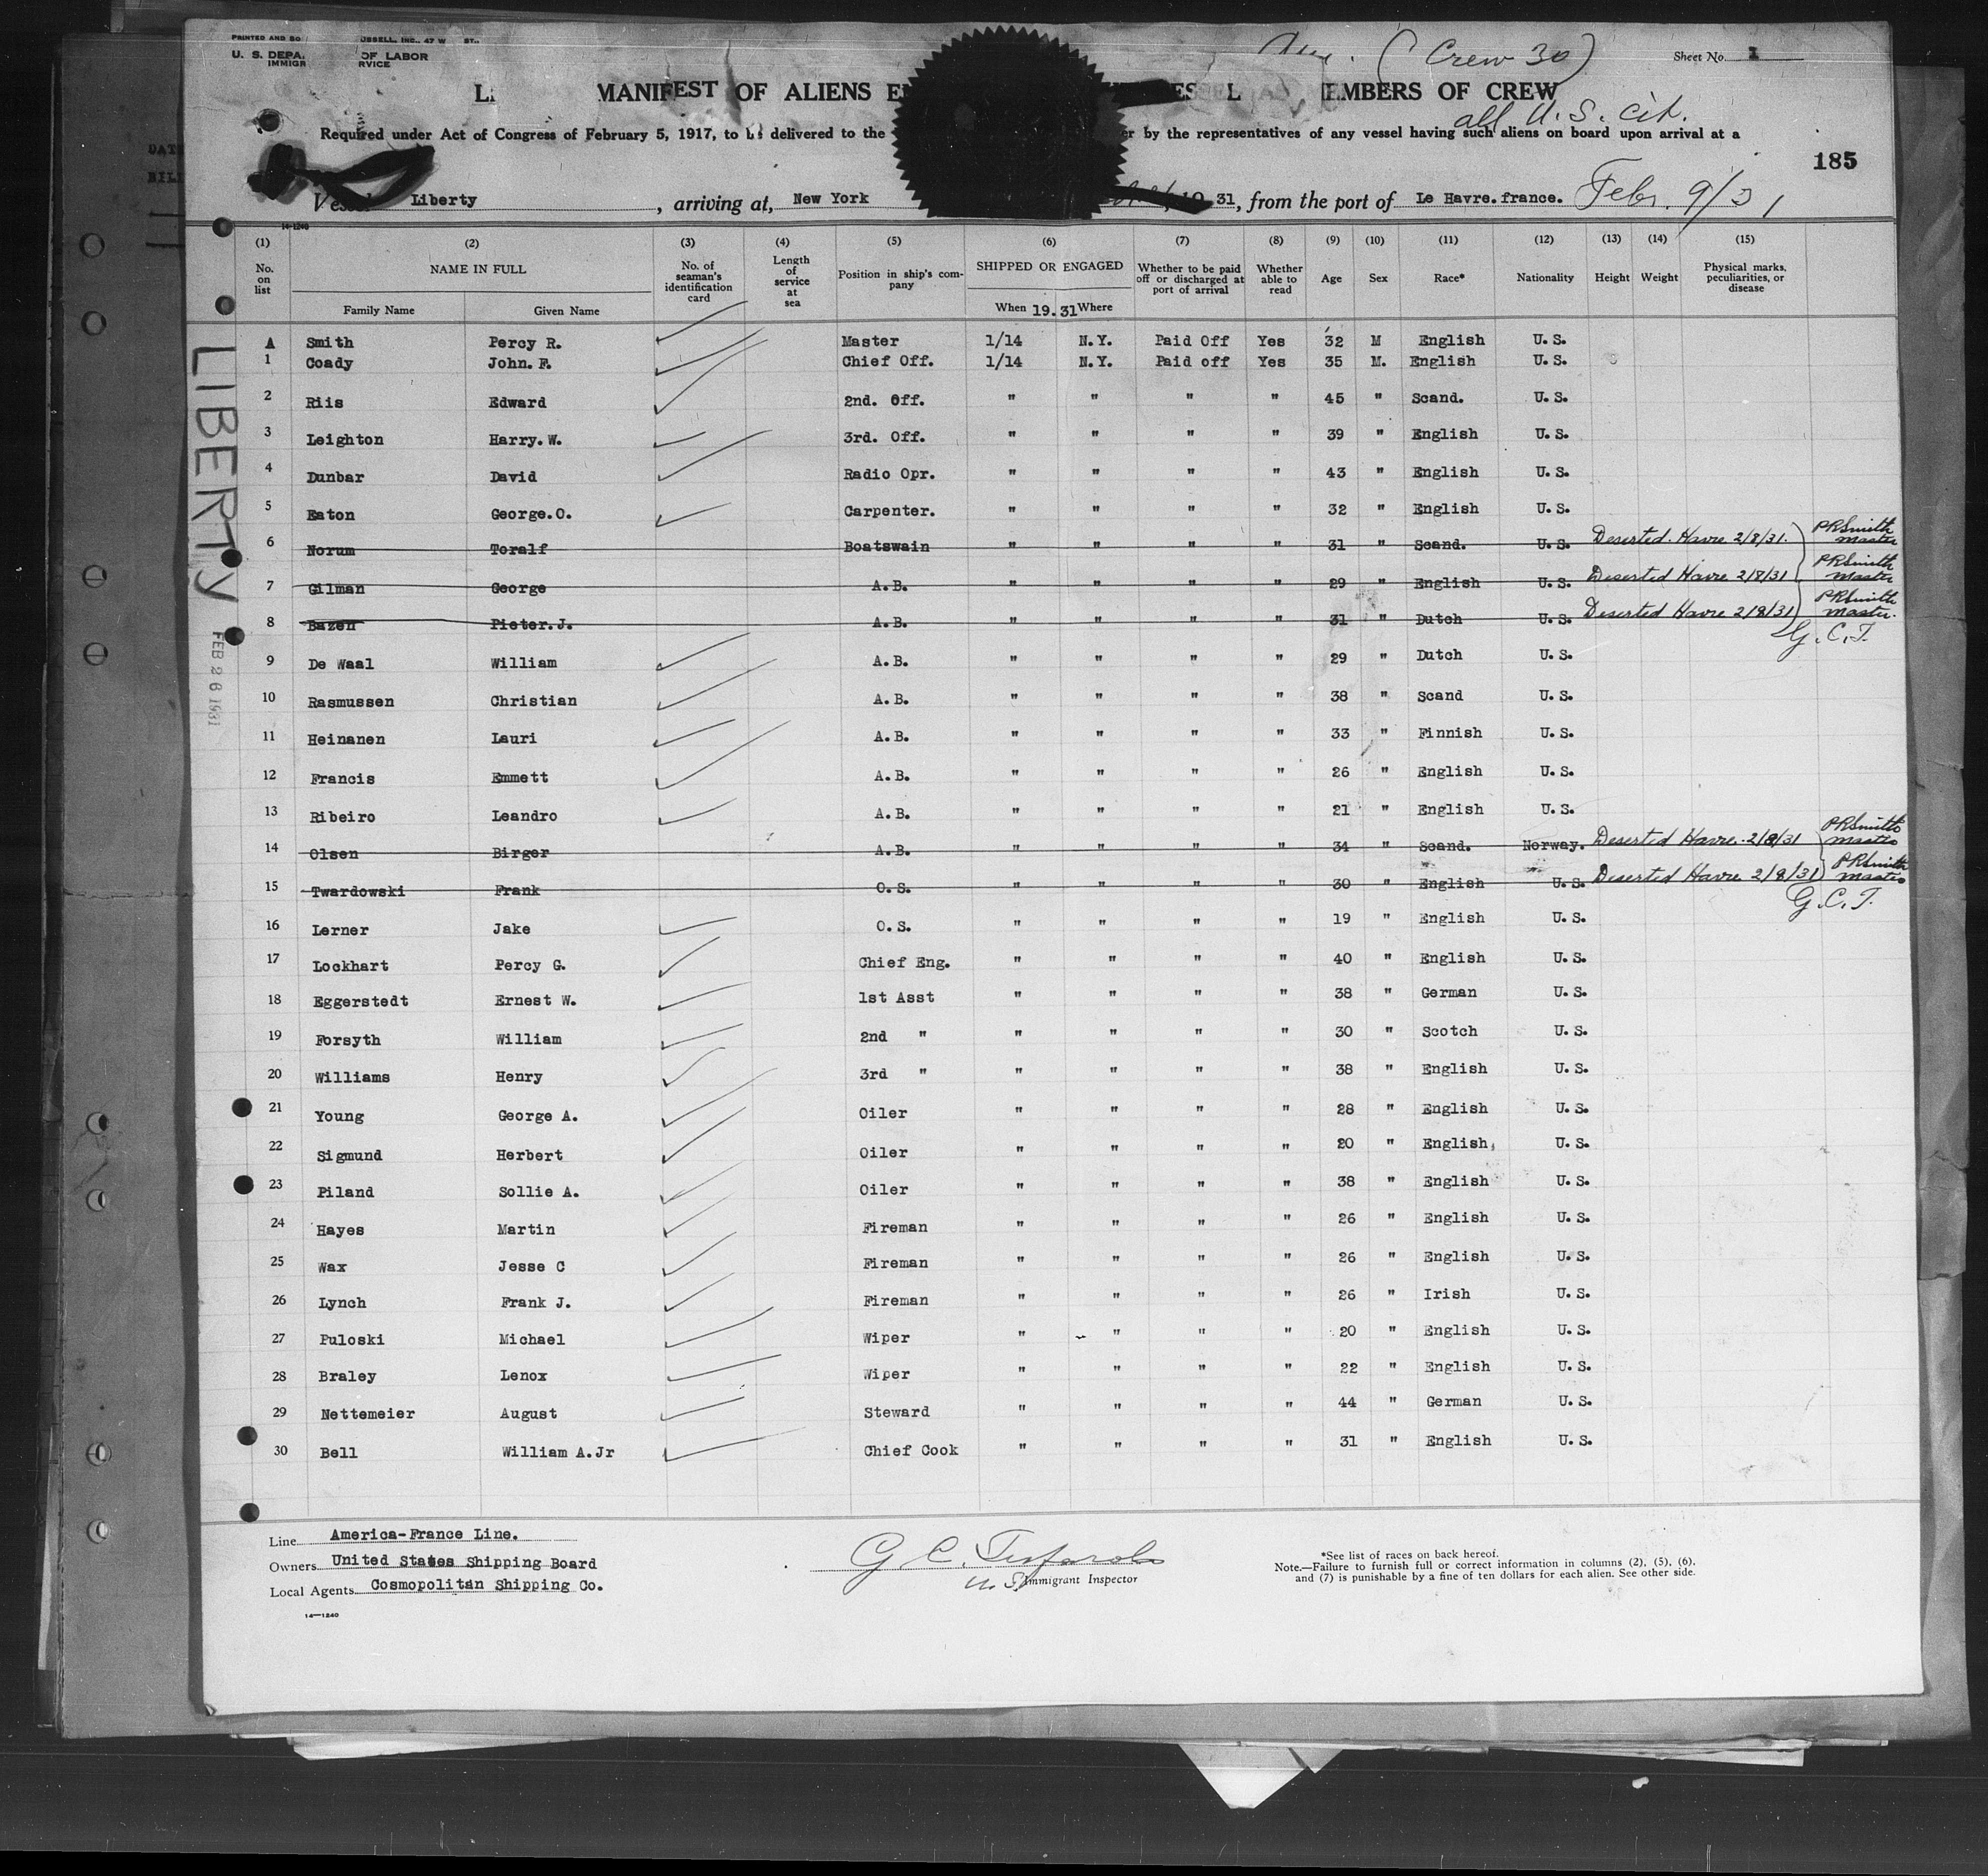 PRINTED AND SO USSELL, INC., 47 W ST.
U. S. DEPA. OF LABOR
IMMIGR RVICE
(Crew 30)
Sheet No. 1
MANIFEST OF ALIENS EMBERS OF CREW
all U.S. cit.
Required under Act of Congress of February 5, 1917, to be delivered to the by the representatives of any vessel having such aliens on board upon arrival at a
185
Vessel Liberty, arriving at, New York 19 31, from the port of Le Havre.france. Febr. 9/31
14-1240
(1) (2) (3) (4) (5) (6) (7) (8) (9) (10) (11) (12) (13) (14) (15)
No. on list NAME IN FULL Family Name Given Name No. of seaman's identification card Length of service at sea Position in ship's company SHIPPED OR ENGAGED When 19.31 Where Whether to be paid off or discharged at port of arrival Whether able to read Age Sex Race* Nationality Height Weight Physical marks, peculiarities, or disease
A Smith Percy R. Master 1/14 N.Y. Paid Off Yes 32 M English U.S.
1 Coady John.F. Chief Off. 1/14 N.Y. Paid off Yes 35 M. English U.S.
2 Riis Edward 2nd. Off. " " " " 45 " Scand. U.S.
3 Leighton Harry.W. 3rd. Off. " " " " 39 " English U.S.
4 Dunbar David Radio Opr. " " " " 43 " English U.S.
5 Eaton George.O. Carpenter. " " " " 32 " English U.S.
6 Norum Toralf Boatswain " " " " 31 " Scand. U.S. Deserted. Havre 2/8/31. PRSmith master
7 Gilman George A.B. " " " " 29 " English U.S. Deserted Havre 2/8/31 PRSmith master
8 Bazen Pieter.J. A.B. " " " " 31 " Dutch U.S. Deserted Havre 2/8/31 PRSmith master.
G.C.T.
9 De Waal William A.B. " " " " 29 " Dutch U.S.
10 Rasmussen Christian A.B. " " " " 38 " Scand U.S.
11 Heinanen Lauri A.B. " " " " 33 " Finnish U.S.
12 Francis Emmett A.B. " " " " 26 " English U.S.
13 Ribeiro Leandro A.B. " " " " 21 " English U.S.
14 Olsen Birger A.B. " " " " 34 " Scand. Norway. Deserted Havre. 2/8/31 PRSmith master
15 Twardowski Frank O.S. " " " " 30 " English U.S. Deserted Havre 2/8/31 PRSmith master
G.C.T.
16 Lerner Jake O.S. " " " " 19 " English U.S.
17 Lockhart Percy G. Chief Eng. " " " " 40 " English U.S.
18 Eggerstedt Ernest W. 1st Asst " " " " 38 " German U.S.
19 Forsyth William 2nd " " " " " 30 " Scotch U.S.
20 Williams Henry 3rd " " " " " 38 " English U.S.
21 Young George A. Oiler " " " " 28 " English U.S.
22 Sigmund Herbert Oiler " " " " 20 " English U.S.
23 Piland Sollie A. Oiler " " " " 38 " English U.S.
24 Hayes Martin Fireman " " " " 26 " English U.S.
25 Wax Jesse C Fireman " " " " 26 " English U.S.
26 Lynch Frank J. Fireman " " " " 26 " Irish U.S.
27 Puloski Michael Wiper " " " " 20 " English U.S.
28 Braley Lenox Wiper " " " " 22 " English U.S.
29 Nettemeier August Steward " " " " 44 " German U.S.
30 Bell William A.Jr Chief Cook " " " " 31 " English U.S.
LIBERTY
FEB 26 1931
Line America-France Line.
Owners United States Shipping Board
Local Agents Cosmopolitan Shipping Co.
14-1240
G. C.
U.S. Immigrant Inspector
*See list of races on back hereof.
Note.—Failure to furnish full or correct information in columns (2), (5), (6),
and (7) is punishable by a fine of ten dollars for each alien. See other side.